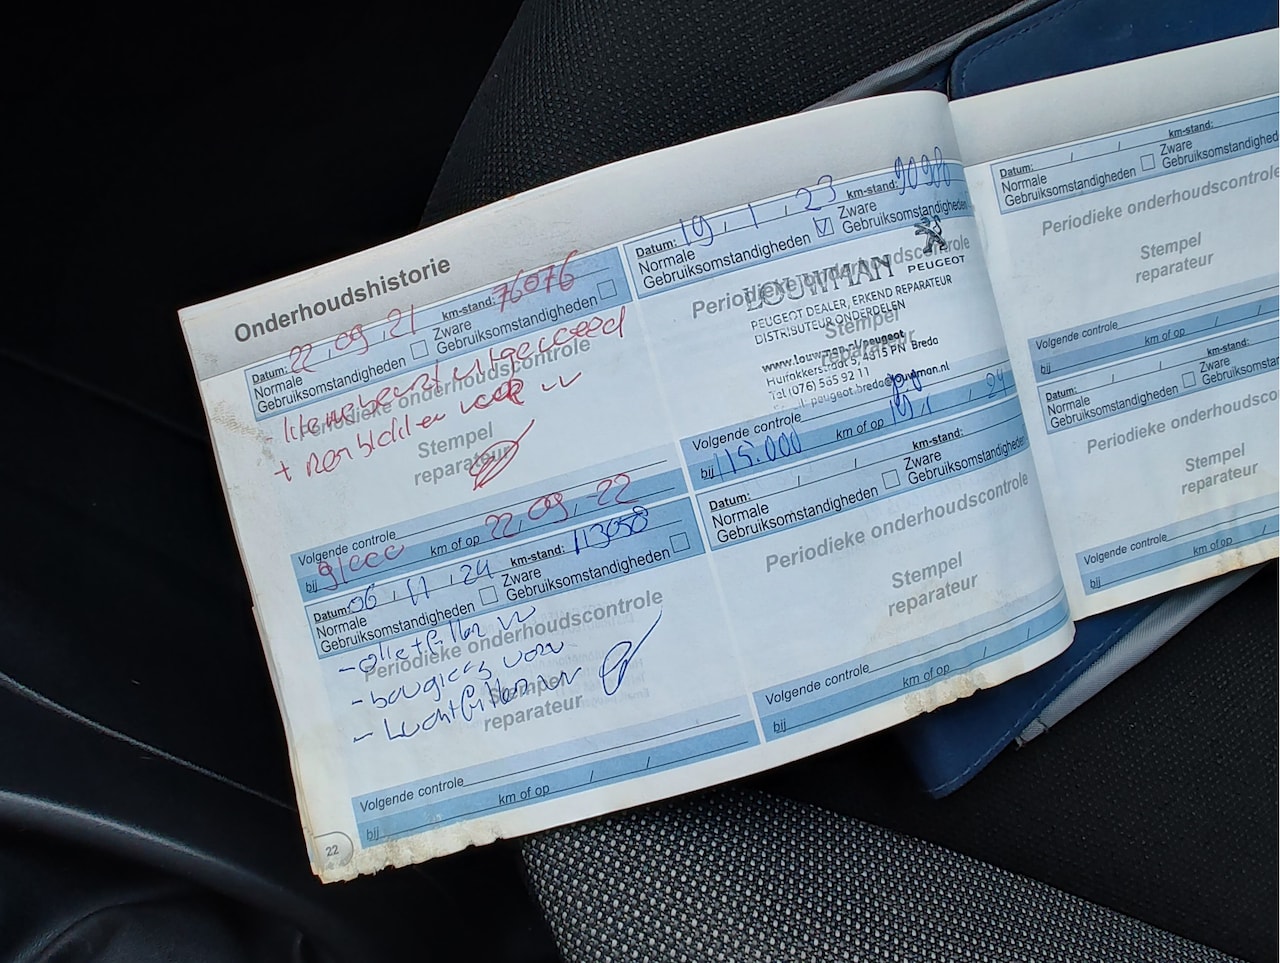 Onderhoudshistorie
Datum: 22, 09, 21 km-stand: 76076
Normale Zware
Gebruiksomstandigheden Gebruiksomstandigheden
Periodieke onderhoudscontrole
+ voor
Stempel
reparateur
Volgende controle
bij 91000 km of op 22, 09, -22
Datum: 06, 11, 24 km-stand: 113058
Normale Zware
Gebruiksomstandigheden Gebruiksomstandigheden
Periodieke onderhoudscontrole
- oliefilter vv
- bougies vv
- luchtfilter vv
Stempel
reparateur
Volgende controle
bij km of op / / /
22
Datum: 19, 1, 23 km-stand:
Normale Zware
Gebruiksomstandigheden Gebruiksomstandigheden
Periodieke onderhoudscontrole
LOUWMAN PEUGEOT
PEUGEOT DEALER, ERKEND REPARATEUR
DISTRIBUTEUR ONDERDELEN
Stempel
reparateur
www.louwman.nl/peugeot
4815 PN Breda
Tel (076) 565 92 11
Volgende controle
bij 115.000 km of op 19, 1, 24
Datum: / / km-stand:
Normale Zware
Gebruiksomstandigheden Gebruiksomstandigheden
Periodieke onderhoudscontrole
Stempel
reparateur
Volgende controle
bij km of op / / /
Datum: / / km-stand:
Normale Zware
Gebruiksomstandigheden Gebruiksomstandigheden
Periodieke onderhoudscontrole
Stempel
reparateur
Volgende controle
bij km of op / /
Datum: / / km-stand:
Normale Zware
Gebruiksomstandigheden
Periodieke
Stempel
reparateur
Volgende controle
bij km of op / /